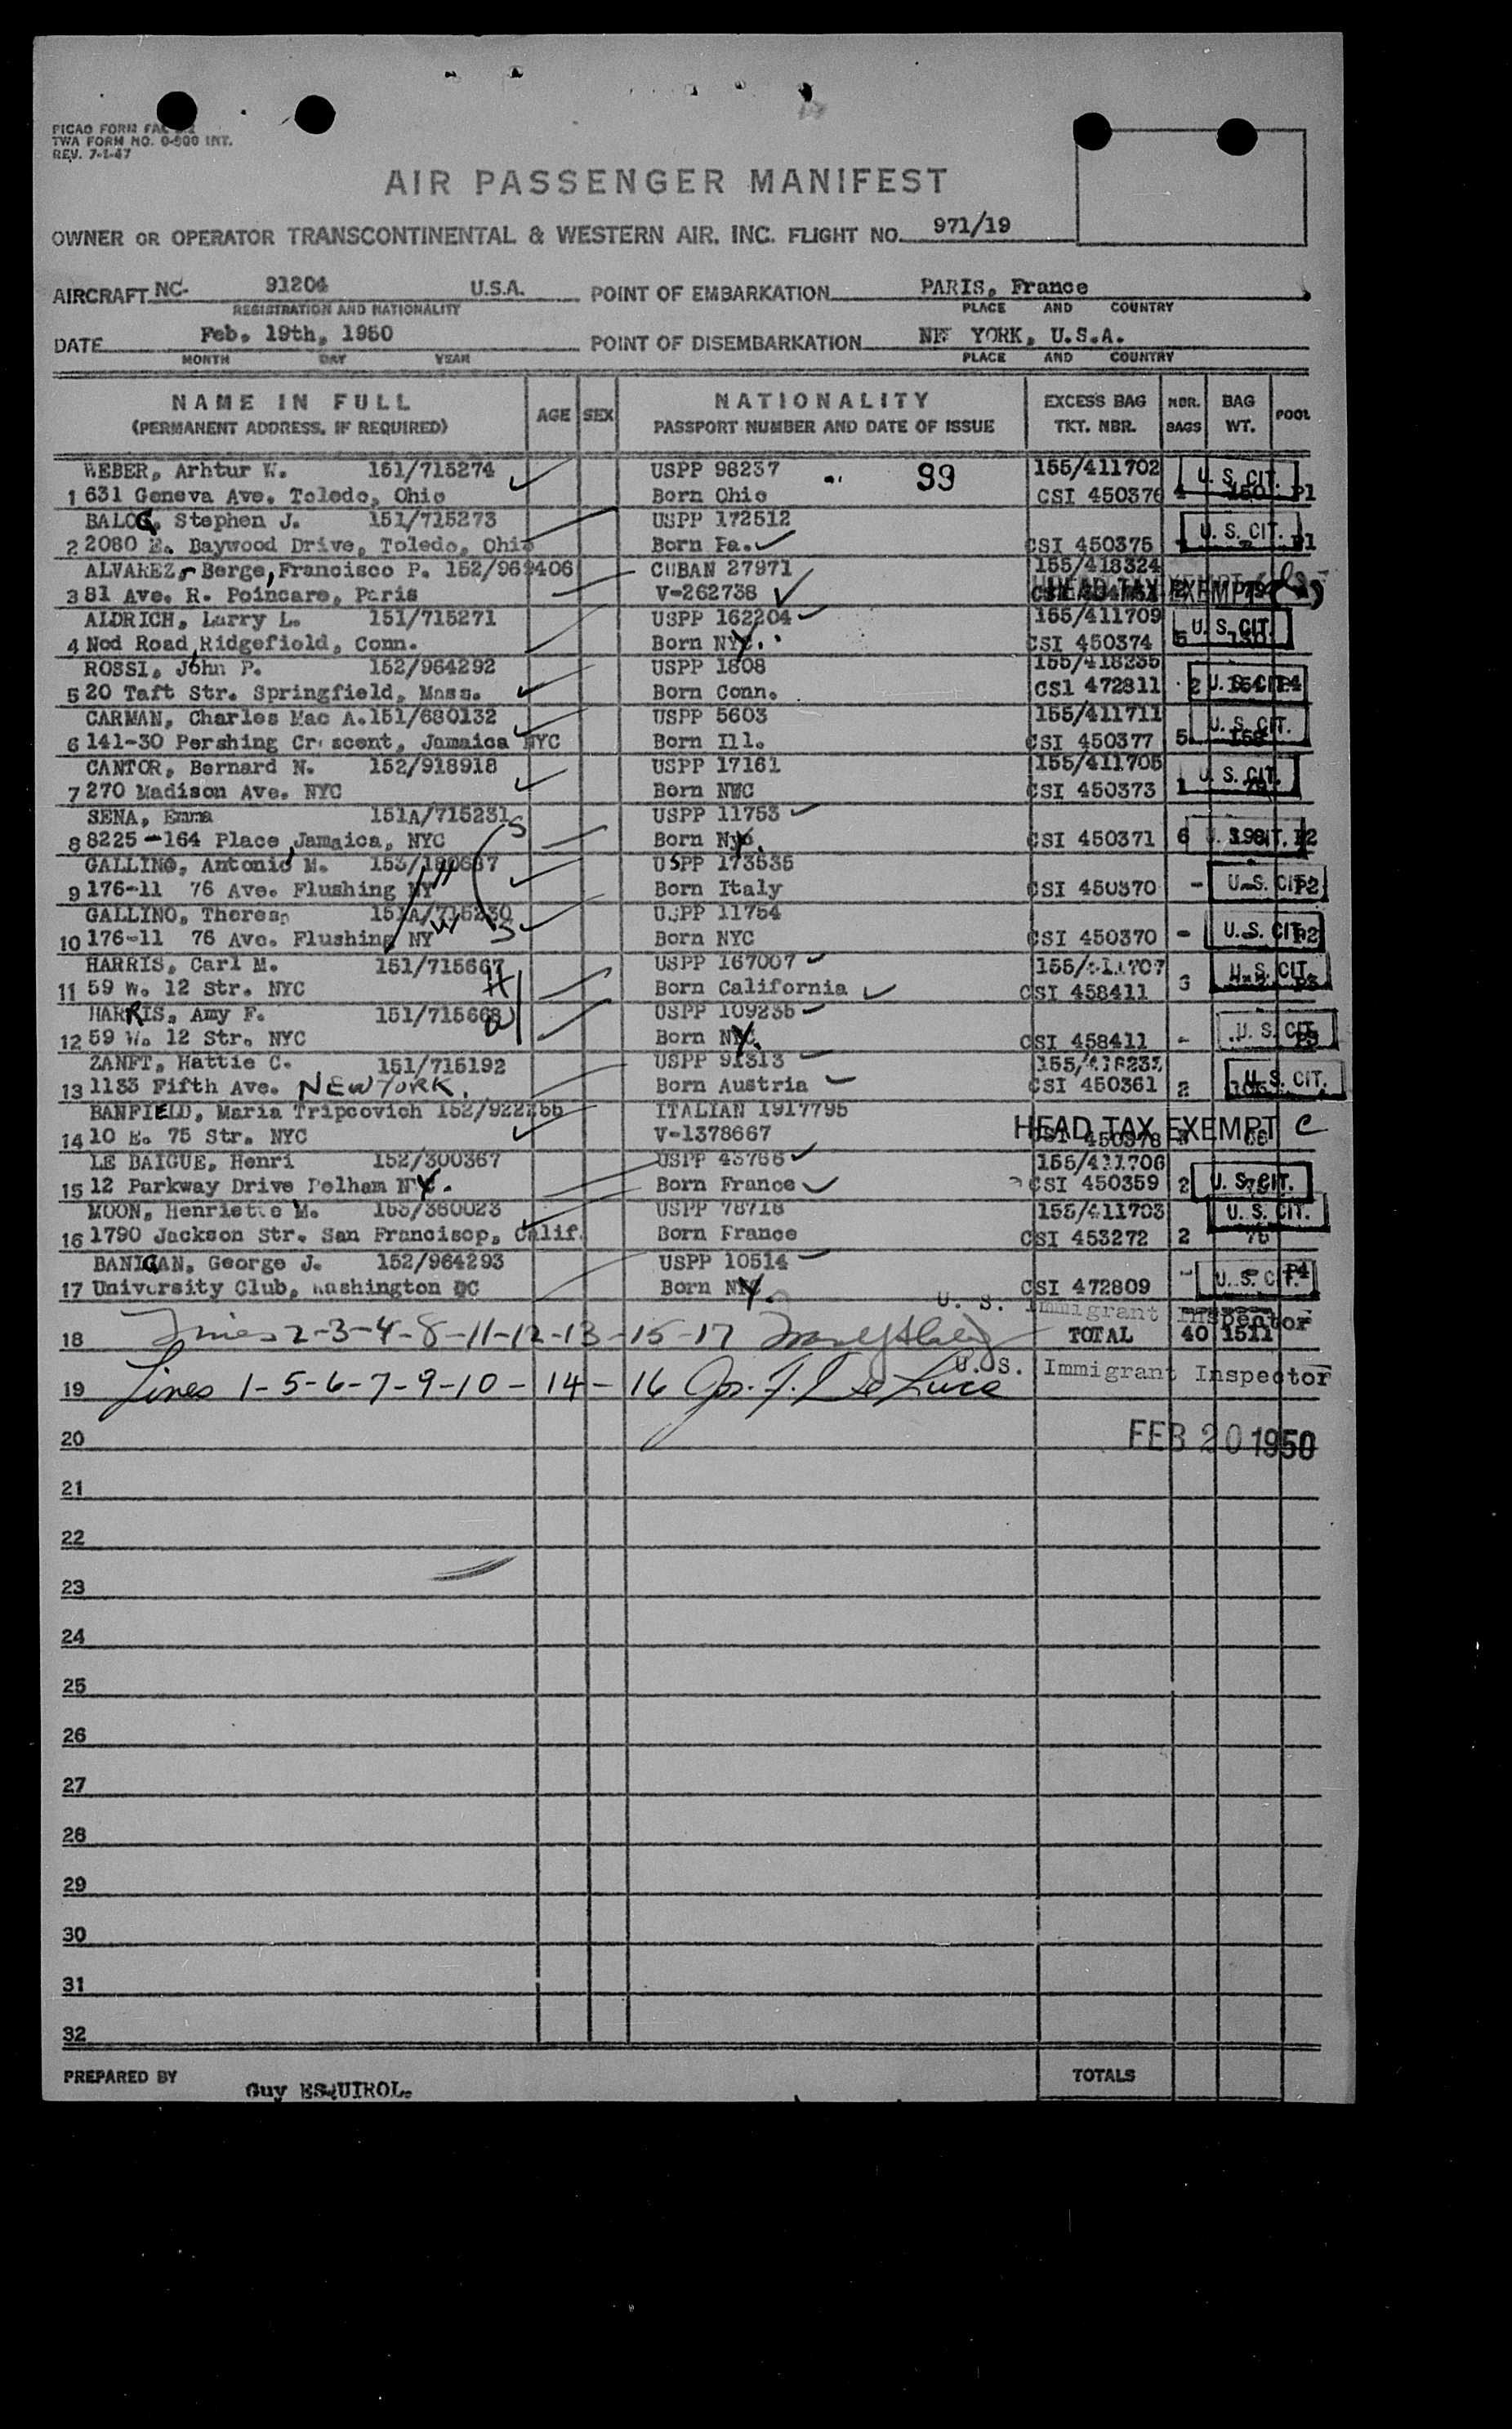 PICAO FORM FAL
TWA FORM NO. 0-900 INT.
REV. 7-1-47
AIR PASSENGER MANIFEST
OWNER OR OPERATOR TRANSCONTINENTAL & WESTERN AIR. INC. FLIGHT NO. 971/19
AIRCRAFT NC- 91204 U.S.A. POINT OF EMBARKATION PARIS, France
REGISTRATION AND NATIONALITY PLACE AND COUNTRY
DATE Feb. 19th, 1950 POINT OF DISEMBARKATION NE YORK, U.S.A.
MONTH DAY YEAR PLACE AND COUNTRY
NAME IN FULL AGE SEX NATIONALITY EXCESS BAG NBR. BAG POOL
(PERMANENT ADDRESS, IF REQUIRED) PASSPORT NUMBER AND DATE OF ISSUE TKT. NBR. BAGS WT.
WEBER, Arhtur W. 151/715274 USPP 98237 99 155/411702 U. S. CIT.
1 631 Geneva Ave. Toledo, Ohio Born Ohio CSI 450376 P1
BALOG, Stephen J. 151/715273 USPP 172512 U. S. CIT.
2 2080 E. Baywood Drive, Toledo, Ohio Born Pa. CSI 450375 P1
ALVAREZ, Berge, Francisco P. CUBAN 27971 155/418324
3 81 Ave. R. Poincare, Paris V-262738 HEAD TAX EXEMPT
ALDRICH, Larry L. 151/715271 USPP 162204 155/411709 U. S. CIT
4 Nod Road, Ridgefield, Conn. Born NY. CSI 450374 5
ROSSI, John P. 152/964292 USPP 1808 155/418235
5 20 Taft Str. Springfield, Mass. Born Conn. CSl 472811 2 U. S. CIT. P4
CARMAN, Charles Mac A. 151/680132 USPP 5603 155/411711 U. S. CIT.
6 141-30 Pershing Crescent, Jamaica NYC Born Ill. CSI 450377 5
CANTOR, Bernard N. 152/918918 USPP 17161 155/411705 U. S. CIT.
7 270 Madison Ave. NYC Born NWC CSI 450373 1
SENA, Emma 151A/715231 S USPP 11753
8 8225-164 Place, Jamaica, NYC Born Ny. CSI 450371 6 U. S. CIT. P2
GALLINO, Antonio M. USPP 173535
9 176-11 76 Ave. Flushing NY H Born Italy CSI 450370 - U. S. CIT. P2
GALLINO, Theresa 151A/715230 USPP 11754
10 176-11 76 Ave. Flushing NY W S Born NYC CSI 450370 - U. S. CIT. P2
HARRIS, Carl M. 151/715667 USPP 167007 155/411707 U. S. CIT.
11 59 W. 12 Str. NYC H Born California CSI 458411 3 P3
HARRIS, Amy F. 151/715668 USPP 109235 U. S. CIT.
12 59 W. 12 Str. NYC W Born NY. CSI 458411 - P3
ZANFT, Hattie C. 151/715192 USPP 91313 U. S. CIT.
13 1133 Fifth Ave. NEW YORK. Born Austria CSI 450361 2
BANFIELD, Maria Tripcovich ITALIAN 1917795
14 10 E. 75 Str. NYC V-1378667 HEAD TAX EXEMPT C
LE DAIGUE, Henri 152/300367 USPP 43766 155/411706
15 12 Parkway Drive Pelham NY. Born France CSI 450359 2 U. S. CIT.
MOON, Henriette M. 153/360023 USPP 78718 155/411703 U. S. CIT.
16 1790 Jackson Str. San Franciscp, Calif. Born France CSI 453272 2 75
BANIGAN, George J. 152/964293 USPP 10514 P4
17 University Club, Washington DC Born NY. CSI 472809 - U. S. CIT.
U. S. Immigrant Inspector
18 Lines 2-3-4-8-11-12-13-15-17 TOTAL 40 1511
U. S. Immigrant Inspector
19 Lines 1-5-6-7-9-10-14-16 Jos. F. De Luca
20 FEB 20 1950
21
22
23
24
25
26
27
28
29
30
31
32
PREPARED BY Guy ESQUIROL. TOTALS